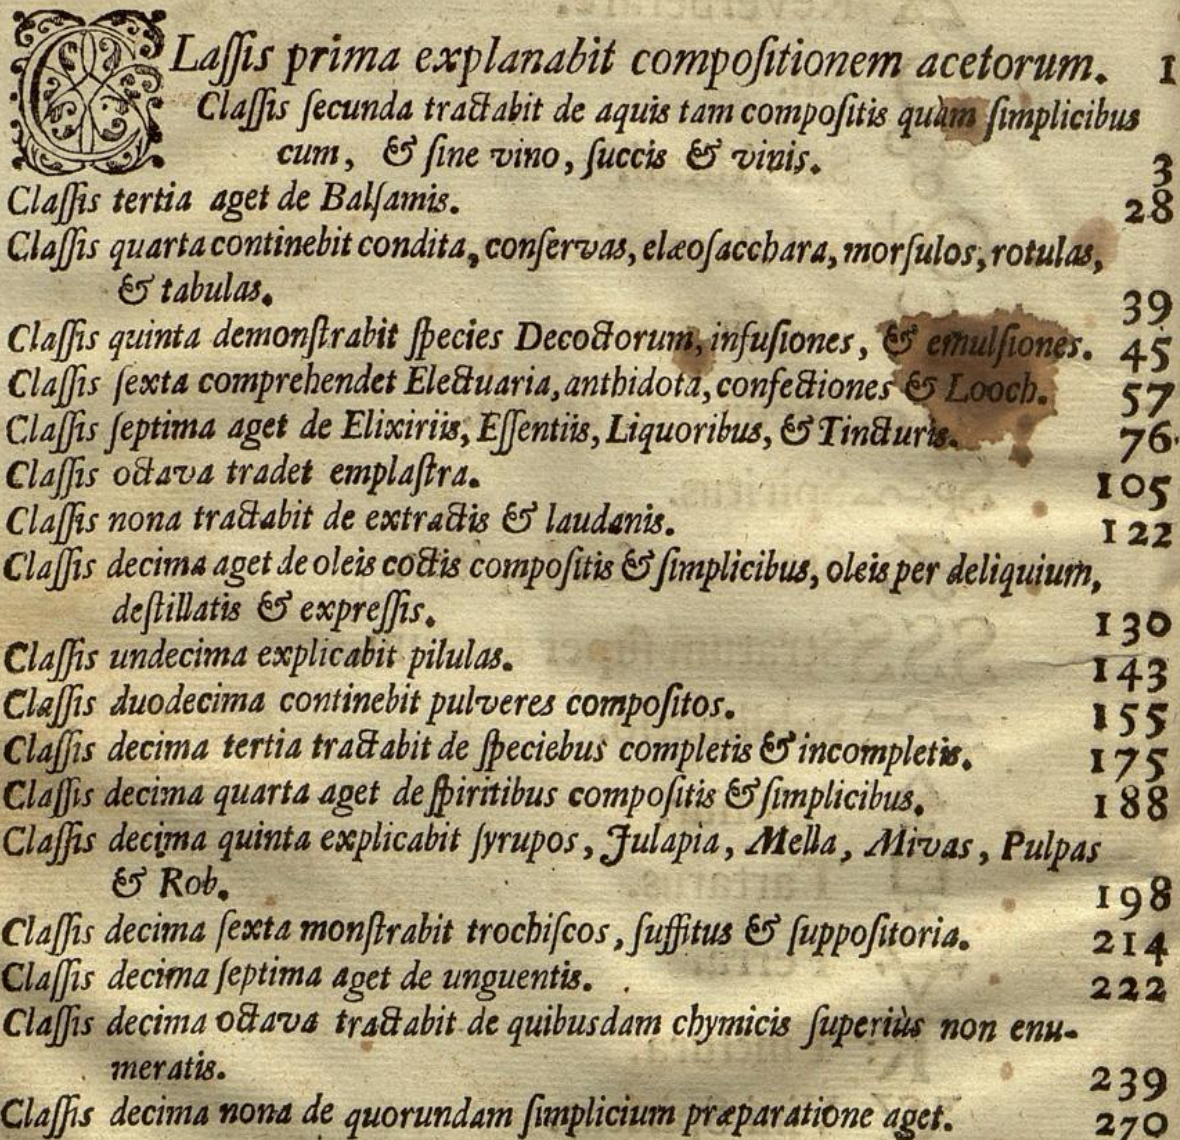 CLaſſis prima explanabit compoſitionem acetorum. 1
Claſſis ſecunda tractabit de aquis tam compoſitis quàm ſimplicibus
cum, & ſine vino, ſuccis & vinis. 3
Claſſis tertia aget de Balſamis. 28
Claſſis quarta continebit condita, conſervas, elæoſacchara, morſulos, rotulas,
& tabulas. 39
Claſſis quinta demonſtrabit ſpecies Decoctorum, infuſiones, & emulſiones. 45
Claſſis ſexta comprehendet Electuaria, anthidota, confectiones & Looch. 57
Claſſis ſeptima aget de Elixiriis, Eſſentiis, Liquoribus, & Tincturis. 76
Claſſis octava tradet emplaſtra. 105
Claſſis nona tractabit de extractis & laudanis. 122
Claſſis decima aget de oleis coctis compoſitis & ſimplicibus, oleis per deliquium,
deſtillatis & expreſſis. 130
Claſſis undecima explicabit pilulas. 143
Claſſis duodecima continebit pulveres compoſitos. 155
Claſſis decima tertia tractabit de ſpeciebus completis & incompletis. 175
Claſſis decima quarta aget de ſpiritibus compoſitis & ſimplicibus. 188
Claſſis decima quinta explicabit ſyrupos, Julapia, Mella, Mivas, Pulpas
& Rob. 198
Claſſis decima ſexta monſtrabit trochiſcos, ſuffitus & ſuppoſitoria. 214
Claſſis decima ſeptima aget de unguentis. 222
Claſſis decima octava tractabit de quibusdam chymicis ſuperiùs non enu-
meratis. 239
Claſſis decima nona de quorundam ſimplicium præparatione aget. 270